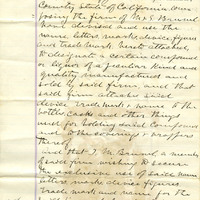 County State of California com
posing the firm of M & S Brunel
have devised and use the
name letters marks device figures
and trade mark hereto attached,
to designate a certain compound
or liquor of a peculiar kind and
quality manufactured and
sold by said firm, and that
said firm attaches said
device trade mark & name to the
bottles, casks and other things
used for holding said compound
and to the coverings & wrappers
thereof
and that I M Brunel a member
of said firm wishing to secure
the exclusive use of said name
letters marks device figures
Trade mark and name for the